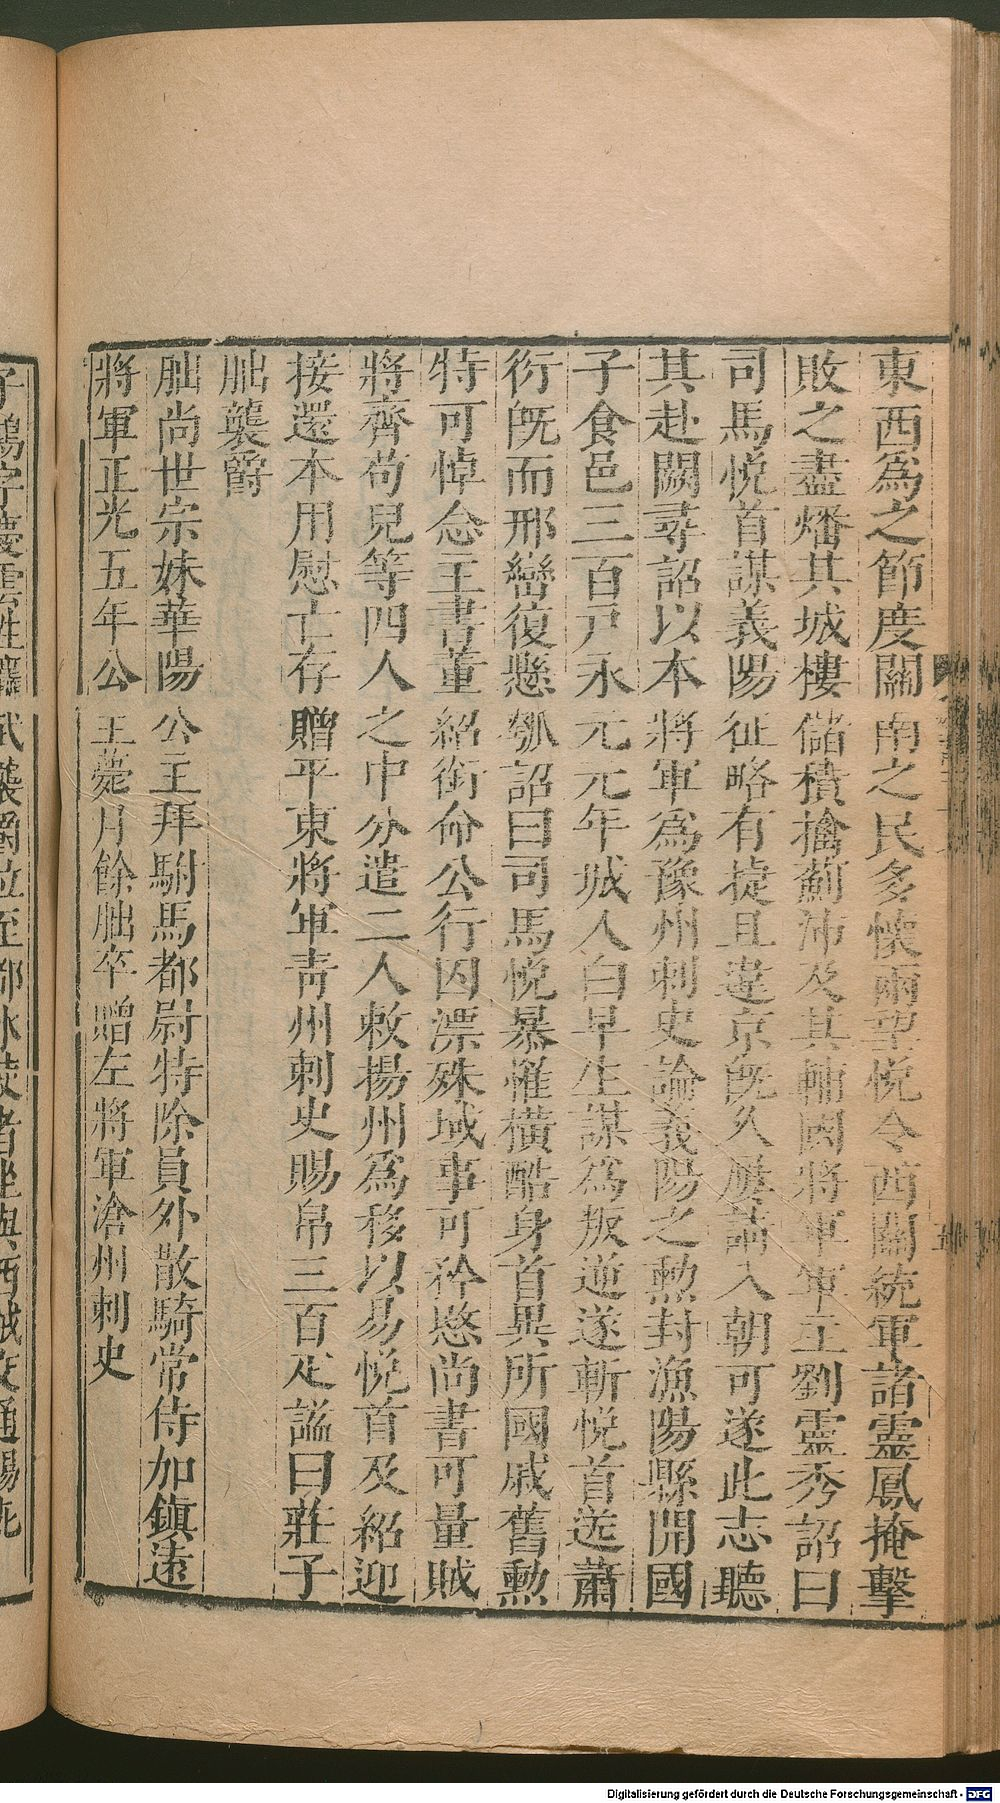 東西爲之節度關南之民多懷兩望悅令西關統軍諸靈鳳掩擊
敗之盡燔其城樓儲積擒薊沛及其輔國將軍軍主劉靈秀詔曰
司馬悅首謀義陽征略有捷且違京旣久屢請入朝可遂此志聽
其赴闕尋詔以本將軍爲豫州刺史論義陽之勳封漁陽縣開國
子食邑三百戸永元元年城人白早生謀爲叛逆遂斬悅首送蕭
衍旣而邢巒復懸瓠詔曰司馬悅暴罹橫酷身首異所國戚舊勳
特可悼念主書董紹銜命公行囚漂殊域事可矜愍尚書可量賊
將齊苟兒等四人之中分遣二人敕揚州爲移以易悅首及紹迎
接還本用慰亡存贈平東將軍靑州刺史賜帛三百疋謚曰莊子
朏襲爵
朏尚世宗妹華陽公主拜駙馬都尉特除員外散騎常侍加鎭遠
將軍正光五年公主薨月餘朏卒贈左將軍滄州刺史
子鴻字慶雲性麤武襲爵位至都水使者坐與西賊交通賜死
Digitalisierung gefördert durch die Deutsche Forschungsgemeinschaft - DFG